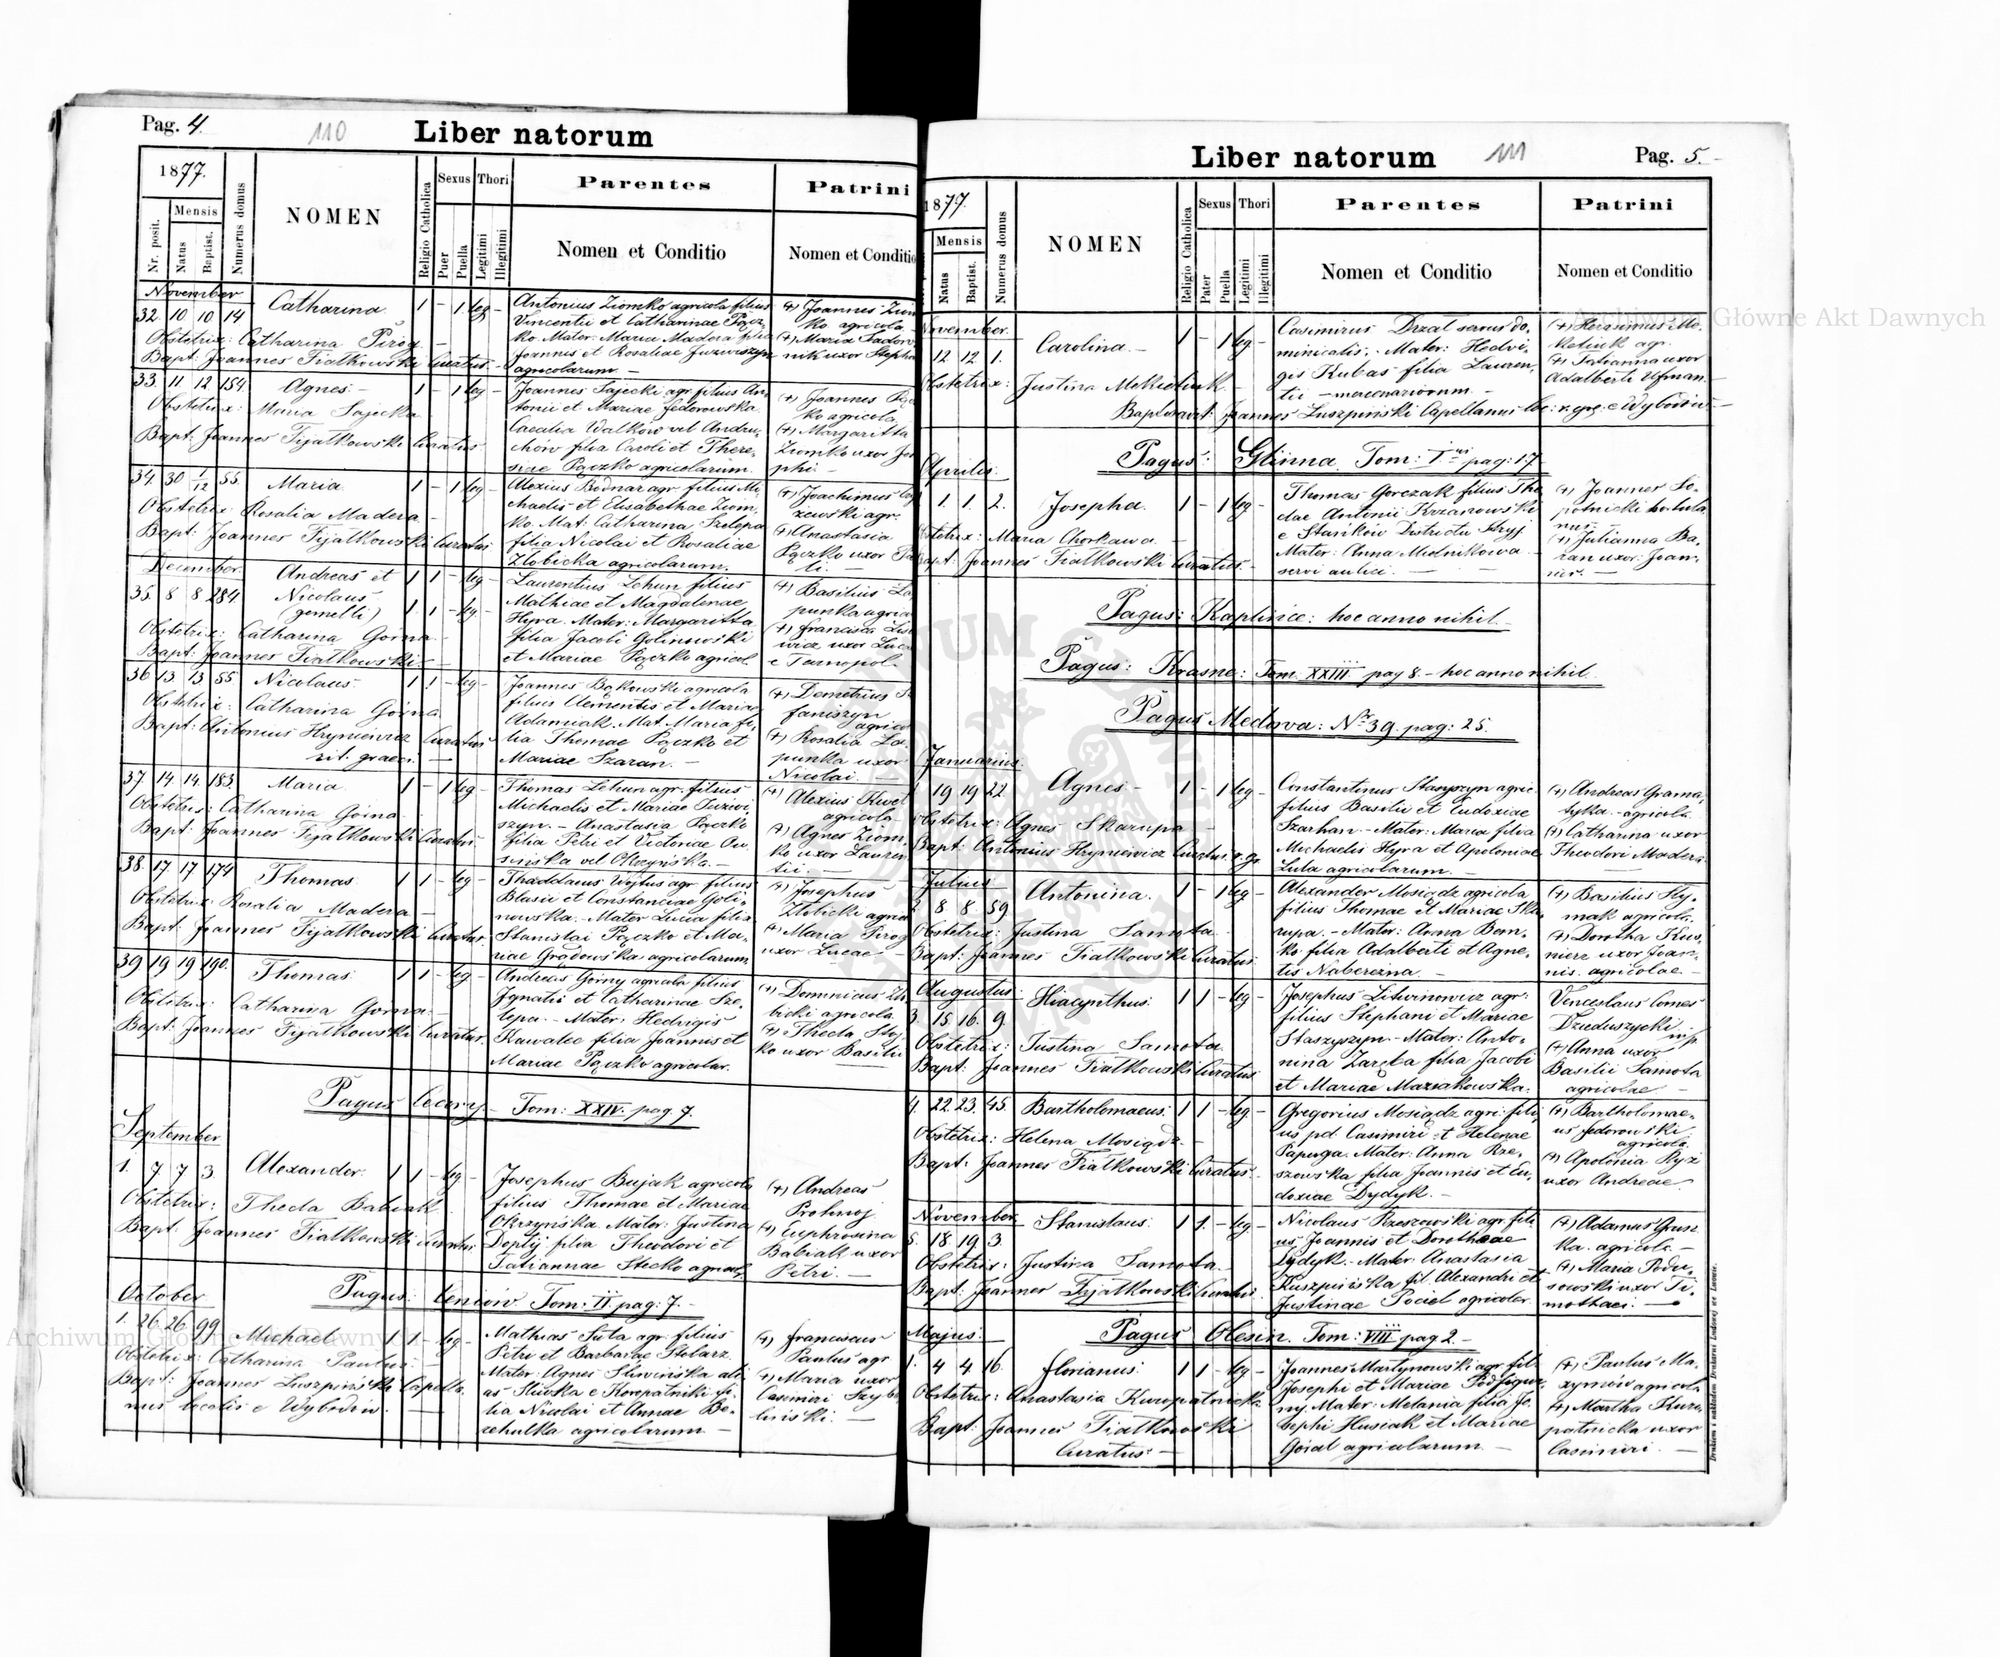 Pag. 4.
110
Liber natorum
1877.
Nr. posit.
Mensis
Natus
Baptist.
Numerus domus
NOMEN
Religio Catholica
Sexus
Puer
Puella
Thori
Legitimi
Illegitimi
Parentes
Nomen et Conditio
Patrini
Nomen et Conditio
November
32. 10 10 14 Catharina 1 - 1 leg -
Obstetrix: Catharina Pirog -
Bapt: Joannes Fiałkowski Curatus. -
Antonius Ziomko agricola filius
Vincentii et Catharinae Pączko
ko. Mater: Maria Madera filia
Joannis et Rosaliae
agricolarum. -
(+) Joannes Ziom
ko agricola
(+) Maria Sadow
nik uxor Stepha
33. 11. 12 154. Agnes - 1 - 1 leg -
Obstetrix: Maria Sajecka
Bapt: Joannes Fijałkowski Curatus.
Joannes Sajecki agr. filius An-
tonii et Mariae Fedorowska.
Caecilia Walków vel Andru-
chów filia Caroli et There-
siae Pączko agricolarum.
(+) Joannes Pącz
ko agricola
(+) Margaritta
Ziomko uxor Jose
phi -
34. 30 1/12 55. Maria 1 - 1 leg -
Obstetrix Rosalia Madera -
Bapt: Joannes Fijałkowski Curatus
Alexius Bednar agr. filius Mi-
chaelis et Elisabethae Ziom-
ko. Mat: Catharina Szelepa
filia Nicolai et Rosaliae
Złobicka agricolarum.
(+) Joachimus
żewski agr.
(+) Anastasia
Pączko uxor Pau
li. -
December
35. 8 8 284. Andreas et 1 1 - leg -
Nicolaus
(gemelli) 1 1 - leg -
Obstetrix: Catharina Górna -
Bapt: Joannes Fiałkowski -
Laurentius Lehun filius
Mathiae et Magdalenae
Hyra. Mater: Margaritta
filia Jacobi Golinowski
et Mariae Pączko agricol.
(+) Basilius Ła
punka agrico
(+) Francisca Lise
wicz uxor Luca
e Tarnopol
36 13 13 55. Nicolaus 1 1 - leg -
Obstetrix: Catharina Górna
Bapt: Antonius Hryniewicz Curatus
rit. graeci. -
Joannes Bąkowski agricola
filius Clementis et Mariae
Adamiak. Mat. Maria fi-
lia Thomae Pączko et
Mariae Szaran. -
(+) Demetrius S
faniszyn
agricol
(+) Rosalia Ła-
punka uxor
Nicolai. -
37 14 14. 183. Maria 1 - 1 leg -
Obstetrix: Catharina Górna
Bapt: Joannes Fijałkowski Curatus.
Thomas Lehun agr. filius
Michaelis et Mariae Juzwi-
szyn. - Anastasia Pączko
filia Petri et Victoriae Ow
sinska vel Okrzyńska. -
(+) Alexius
agricola
(+) Agnes Ziom
ko uxor Lauren
tii. -
38. 17 17 174 Thomas 1 1 - leg -
Obstetrix Rosalia Madera -
Bapt: Joannes Fijałkowski Curatus.
Thaddaeus Wojtus agr. filius
Blasii et Constanciae Goli-
nowska. - Mater Lucia filia
Stanislai Pączko et Ma-
riae Gradowska agricolarum
(+) Josephus
Złobicki agrico
(+) Maria Pirog
uxor Lucae -
39 19 19 190. Thomas 1 1 - leg -
Obstetrix: Catharina Górna -
Bapt: Joannes Fijałkowski Curatus.
Andreas Górny agricola filius
Ignatii et Catharinae Sze-
lepa. - Mater: Hedvigis
Kawalec filia Joannis et
Mariae Pączko agricolar.
(+) Dominicus Zło
bicki agricola
(+) Thecla Stoj
ko uxor Basilii
Pagus Cecory - Tom: XXIV. pag 7.
September
1. 7 7 3. Alexander 1 1 - leg -
Obstetrix: Thecla Babiak
Bapt. Joannes Fiałkowski Curatus.
Josephus Bujak agricola
filius Thomae et Mariae
Okrzyńska. Mater: Justina
filia Theodori et
Tatiannae Stecko agricol.
(+) Andreas
Prohnoj
(+) Euphrosina
Babiak uxor
Petri. -
Pagus: Ceniów Tom: II pag: 7. -
October
1. 26 26 99 Michael 1 1 - leg -
Obstetrix: Catharina Paulus: -
Bapt: Joannes Łuszpiński Capella-
nus localis e Wybudów. -
Mathias Suta agr. filius
Petri et Barbarae Stolarz.
Mater: Agnes Śliwińska ali-
as Śliwska e Koropatniki fi-
lia Nicolai et Annae Be-
rehulka agricolarum -
(+) Franciscus
Paulus agr
(+) Maria uxor
Casimiri Szyb
liński. -
Liber natorum
111
Pag. 5. -
1877.
Mensis
Natus
Baptist.
Numerus domus
NOMEN
Religio Catholica
Sexus
Pater
Puella
Thori
Legitimi
Illegitimi
Parentes
Nomen et Conditio
Patrini
Nomen et Conditio
November.
12 12 1. Carolina. - 1 - 1 leg -
Obstetrix: Justina Mekieliuk -
Baptisavit: Joannes Łuszpiński Capellanus loc: r. gr. e Wybudów. -
Casimirus Drzał servus do-
minicalis. - Mater: Hedvi-
gis Kubas filia Lauren-
tii - mercenariorum -
(+) Herasimus Me-
keliuk agr.
(+) Tatianna uxor
Adalberti Ufman. -
Pagus: Glinna Tom: Imus pag: 17
Aprilis.
1. 1. 2. Josepha. 1 - 1 leg -
Obstetrix: Maria Chorkawa -
Bapt: Joannes Fiałkowski Curatus. -
Thomas Gorczak filius The
clae Antonii Krzanowski
e Stańków Districtu Stryj
Mater: Anna Mielnikowa
servi aulici. -
(+) Joannes So-
potnicki hortula
nus -
(+) Julianna Ba-
ran uxor Joan-
nis. -
Pagus: Kaplińce: hoc anno nihil. -
Pagus: Krasne: Tom. XXIII pag 8. - hoc anno nihil.
Pagus Medova: Nr 39 pag: 25.
Januarius:
19 19 22 Agnes - 1 - 1 leg -
Obstetrix: Agnes Skarupa -
Bapt: Antonius Hryniewicz Curatus r. gr
Constantinus Staszyszyn agric-
filius Basilii et Eudoxiae
Szarhan. - Mater: Maria filia
Michaelis Hyra et Apoloniae
Luta agricolarum. -
(+) Andreas Grama-
tyka. - agricola.
(+) Catharina uxor
Theodori Madera
Julius
2. 8. 8. 59. Antonina. 1 - 1 leg -
Obstetrix: Justina Samota
Bapt: Joannes Fiałkowski Curatus.
Alexander Mosiądz agricola
filius Thomae et Mariae Ska-
rupa. - Mater: Anna Bom-
ko filia Adalberti et Agne-
tis Naberezna -
(+) Basilius Hy-
mak agricola.
(+) Dorotha Kus-
nierz uxor Joan-
nis. agricolae. -
Augustus:
3. 15. 16. 9. Hiacynthus: 1 1 - leg -
Obstetrix: Justina Samota
Bapt: Joannes Fiałkowski Curatus
Josephus Litwinowicz agr:
filius Stephani et Mariae
Staszyszyn. - Mater: Anto-
nina Zaręba filia Jacobi
et Mariae Maziakowska.
Venceslaus Comes
Dzieduszycki
mp
(+) Anna uxor
Basilii Samota
agricolae -
4. 22. 23. 45. Bartholomaeus. 1 1 - leg -
Obstetrix: Helena Mosiądz -
Bapt: Joannes Fiałkowski Curatus.
Gregorius Mosiądz agr: fili-
us pd. Casimiri et Helenae
Papuga. Mater: Anna Rze-
szowska filia Joannis et Eu-
doxiae Dydyk. -
(+) Bartholomae-
us Fedorowski
agricola.
(+) Apolonia Ryż
uxor Andreae
November
5. 18. 19 3. Stanislaus: 1 1. - leg -
Obstetrix: Justina Samota. -
Bapt: Joannes Fijałkowski Curatus.
Nicolaus Rzeszowski agr. fili-
us Joannis et Dorotheae
Dydyk. Mater: Anastasia
Łuszpińska fil. Alexandri et
Justinae Pociel agricolar.
(+) Adamus Grusz
ka. agricola. -
(+) Maria Podu-
sowski uxor Ti-
mothaei. -
Pagus Olesin. Tom: VIII pag 2. -
Majus:
1. 4 4 16. Florianus: 1 1 - leg -
Obstetrix: Anastasia Kuropatnicka
Bapt: Joannes Fiałkowski
Curatus: -
Joannes Martynowski agr. fil.
Josephi et Mariae Podfigur-
ny. Mater: Melania filia Jo-
sephi Husiak et Mariae
Góral agricolarum. -
(+) Paulus Ma-
xymów agricola
(+) Martha Kuro-
patnicka uxor
Casimiri. -
Drukiem i nakładem Drukarni Ludowej we Lwowie.
Archiwum Główne Akt Dawnych
Archiwum Główne Akt Dawnych